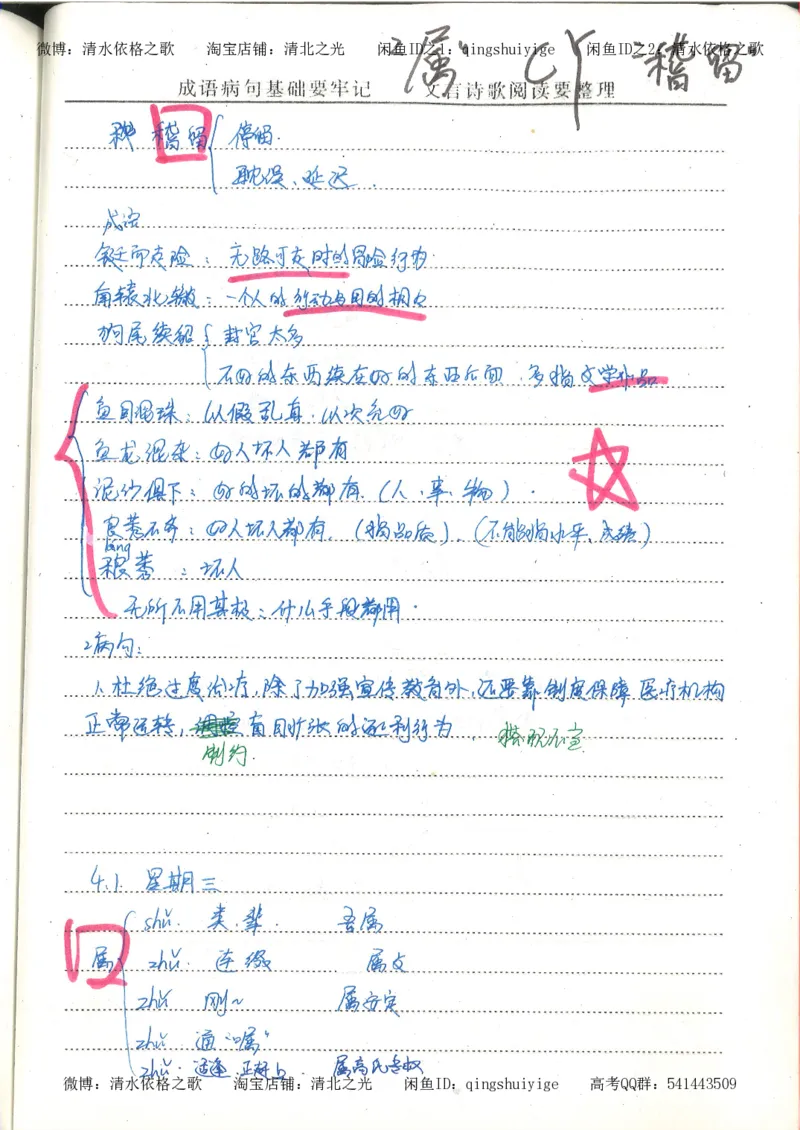 微博：清水依格之歌 淘宝店铺：清北之光 闲鱼ID之1：qingshuiyige 闲鱼ID之2：清水依格之歌
属 稽留
成语病句基础要牢记 文言诗歌阅读要整理
稽留 停留.
耽误、延迟.
成语
铤而走险：无路可走时的冒险行为.
南辕北辙：一个人的行动与目的相反
狗尾续貂 封官太多
不好的东西续在好的东西后面，多指文学作品
鱼目混珠：以假乱真.以次充好
鱼龙混杂：好人坏人都有
泥沙俱下：好的坏的都有.（人、事、物）.
良莠不齐：好人坏人都有.（指品质）.（不能指水平、成绩）
láng
稂莠：坏人
无所不用其极：什么手段都用.
2病句：
1.杜绝过度治疗，除了加强宣传教育外，还要靠制度保障医疗机构
正常运转，调控盲目扩张的逐利行为.
制约.
搭配不宜
4.1. 星期三
属 shǔ. 类.辈. 吾属
zhǔ. 连缀 属文
zhǔ 刚~ 属安定
zhǔ 通“嘱”
zhǔ. 适逢.正赶上. 属高氏专权
微博：清水依格之歌 淘宝店铺：清北之光 闲鱼ID：qingshuiyige 高考QQ群：541443509